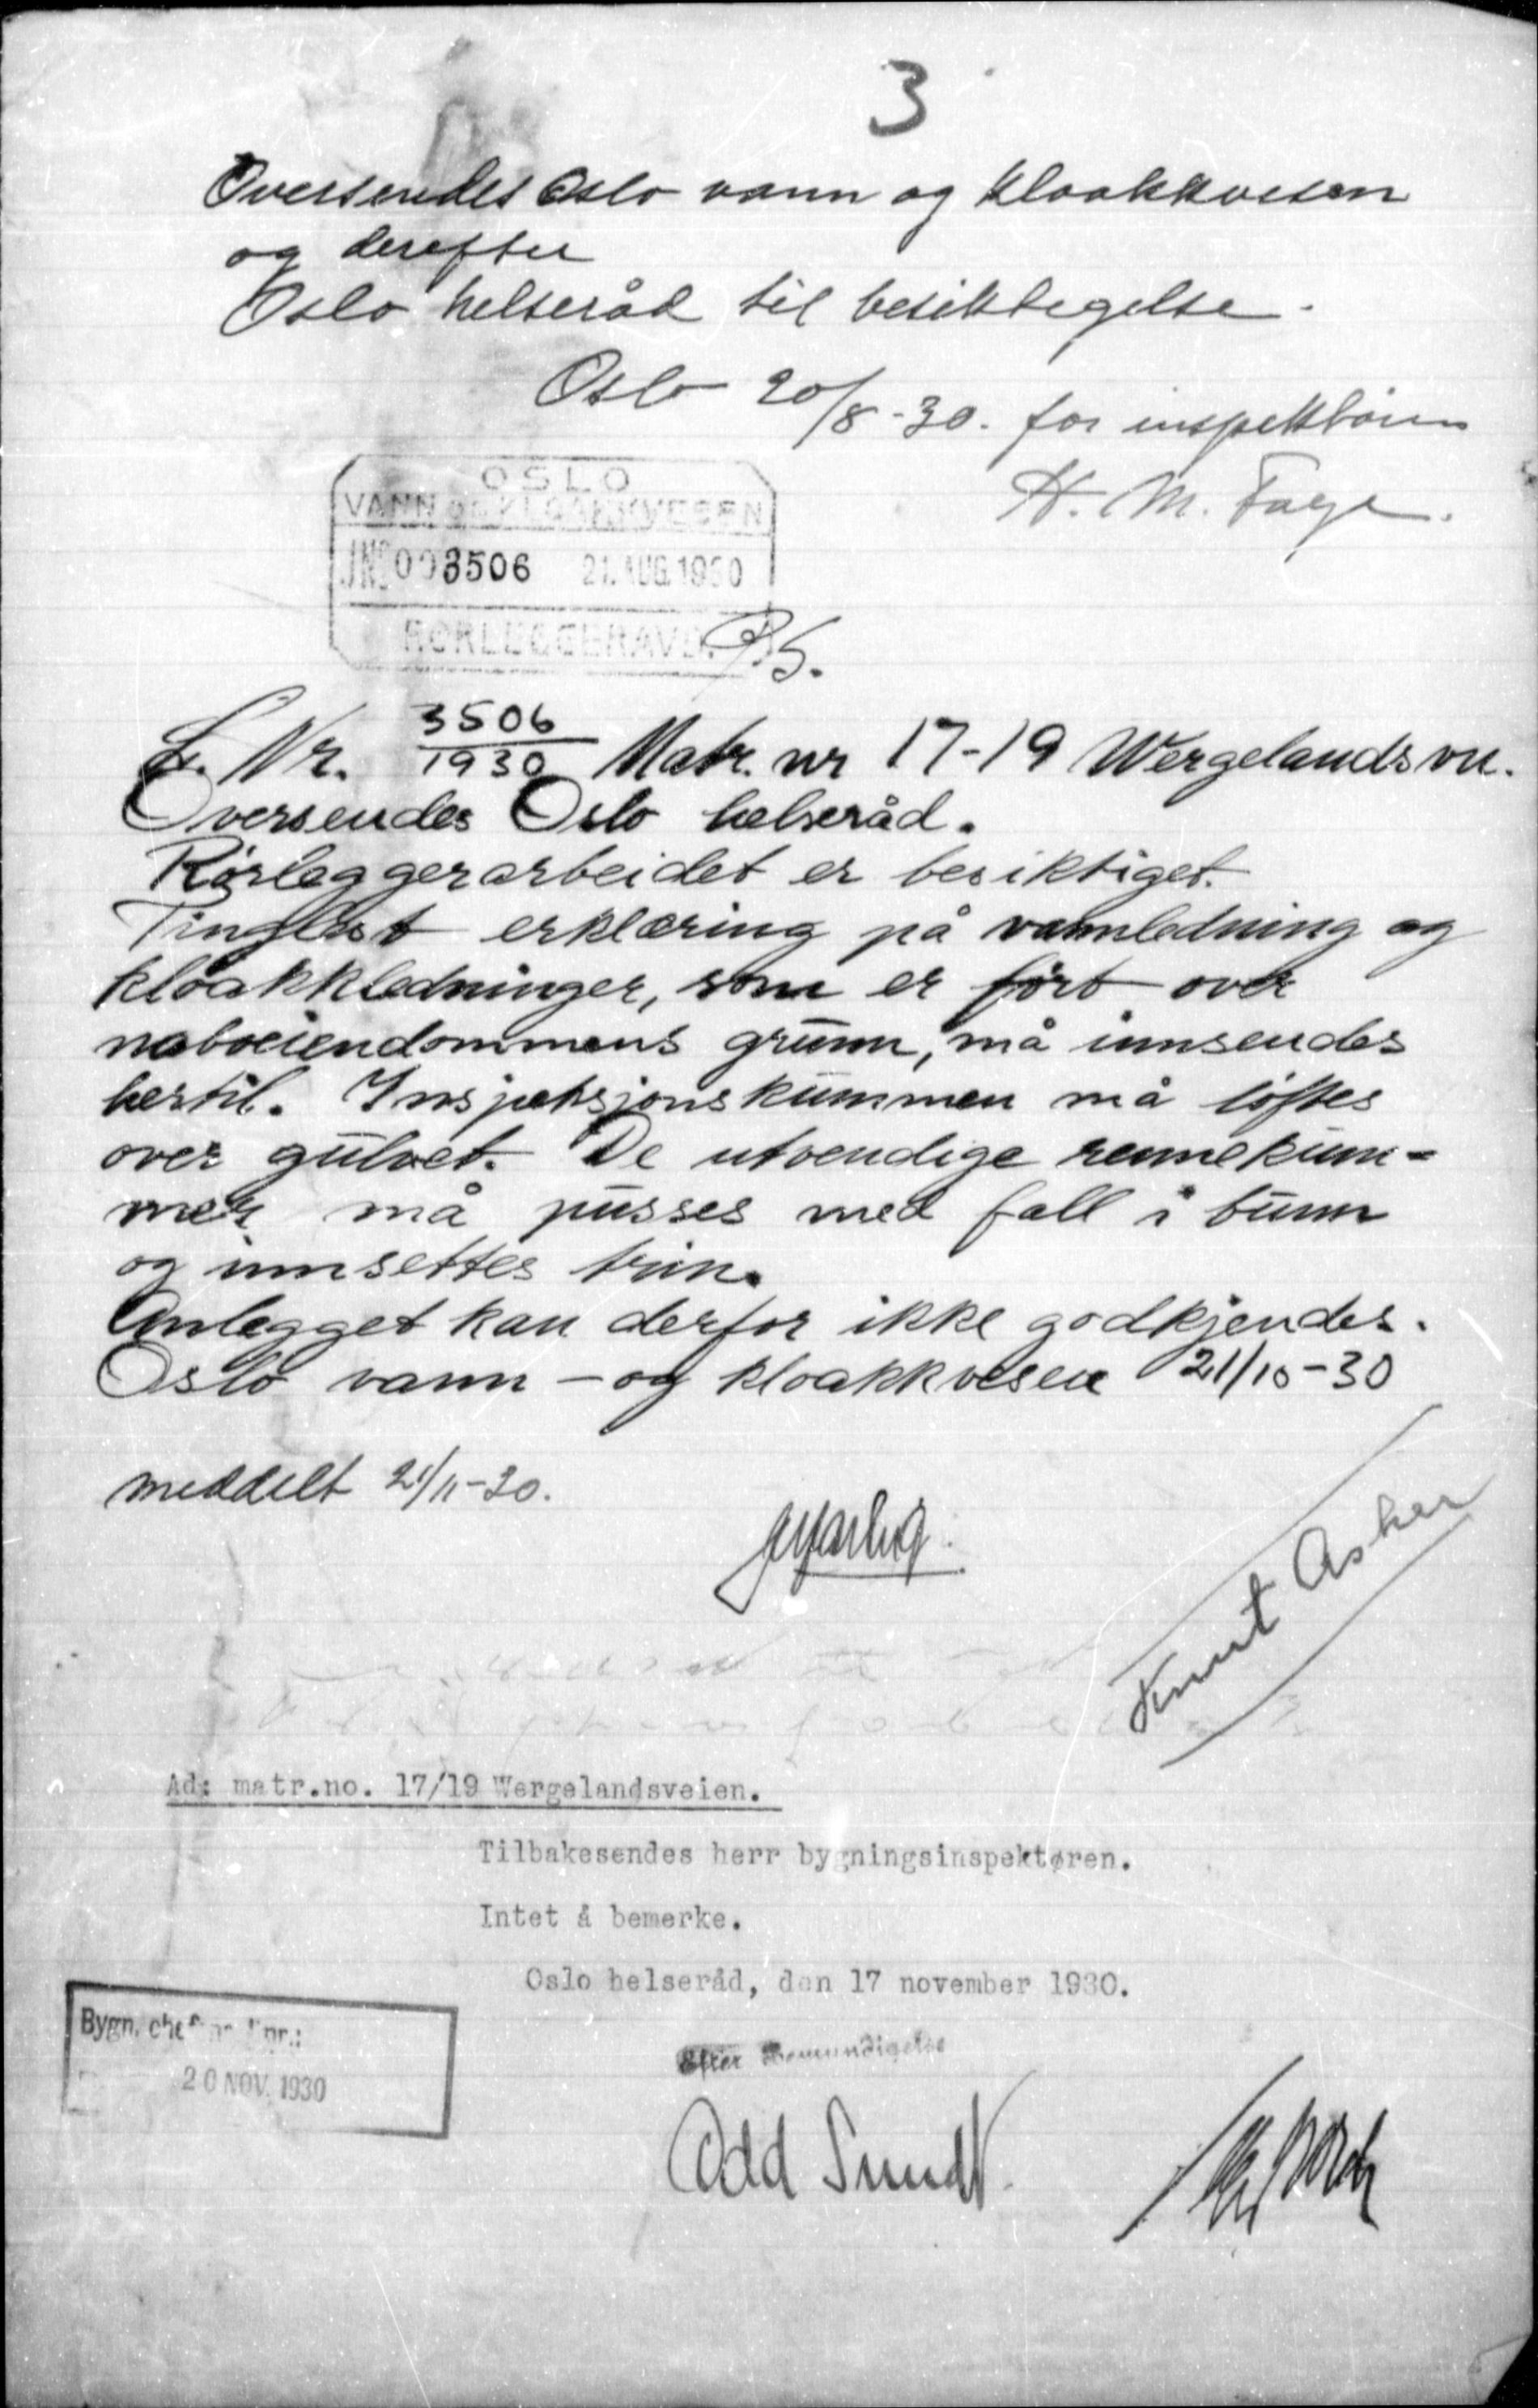 3
Oversendes Oslo vann og kloakkvesen
og derefter
Oslo helseråd til besiktigelse.
Oslo 20/8-30. for inspektøren
H. M. Faye.
OSLO
VANN OG KLOAKKVESEN
JNo 003506 21. AUG. 1930
RØRLEGGERAVD.
J. Nr. 3506/1930 Matr. nr 17-19 Wergelandsvn.
Oversendes Oslo helseråd.
Rørleggerarbeidet er besiktiget.
Tinglest erklæring på vannledning og
kloakkledninger, som er ført over
naboeiendommens grunn, må innsendes
hertil. Inspeksjonskummen må løftes
over gulvet. De utvendige rennekum-
mer må pusses med fall i bunn
og innsettes trin.
Anlegget kan derfor ikke godkjendes.
Oslo vann - og kloakkvesen 21/10-30
meddelt 21/11-30.
Knut Asker
Ad: matr.no. 17/19 Wergelandsveien.
Tilbakesendes herr bygningsinspektøren.
Intet å bemerke.
Oslo helseråd, den 17 november 1930.
Efter bemyndigelse
Bygn. chefens Jnr.:
20 NOV. 1930
Odd Sundt.